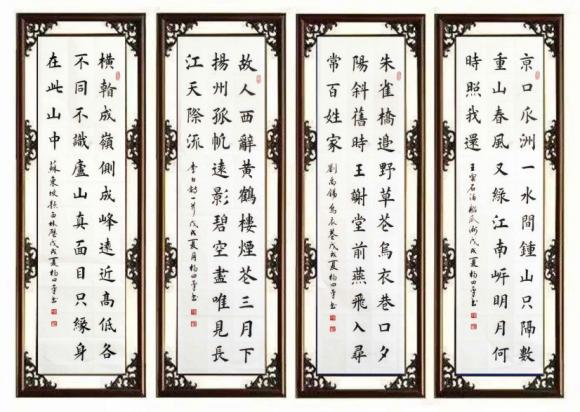 京口瓜洲一水間鍾山只隔數
重山春風又綠江南岸明月何
時照我還 王安石泊船瓜洲戊戌夏楊四平書
朱雀橋邉野草花烏衣巷口夕
陽斜舊時王謝堂前燕飛入尋
常百姓家 劉禹錫烏衣巷戊戌夏楊四平書
故人西辭黃鶴樓煙花三月下
揚州孤帆遠影碧空盡唯見長
江天際流 李白詩一首戊戌夏月楊四平書
橫看成嶺側成峰遠近高低各
不同不識廬山真面目只緣身
在此山中 蘇東坡題西林壁戊戌夏楊四平書